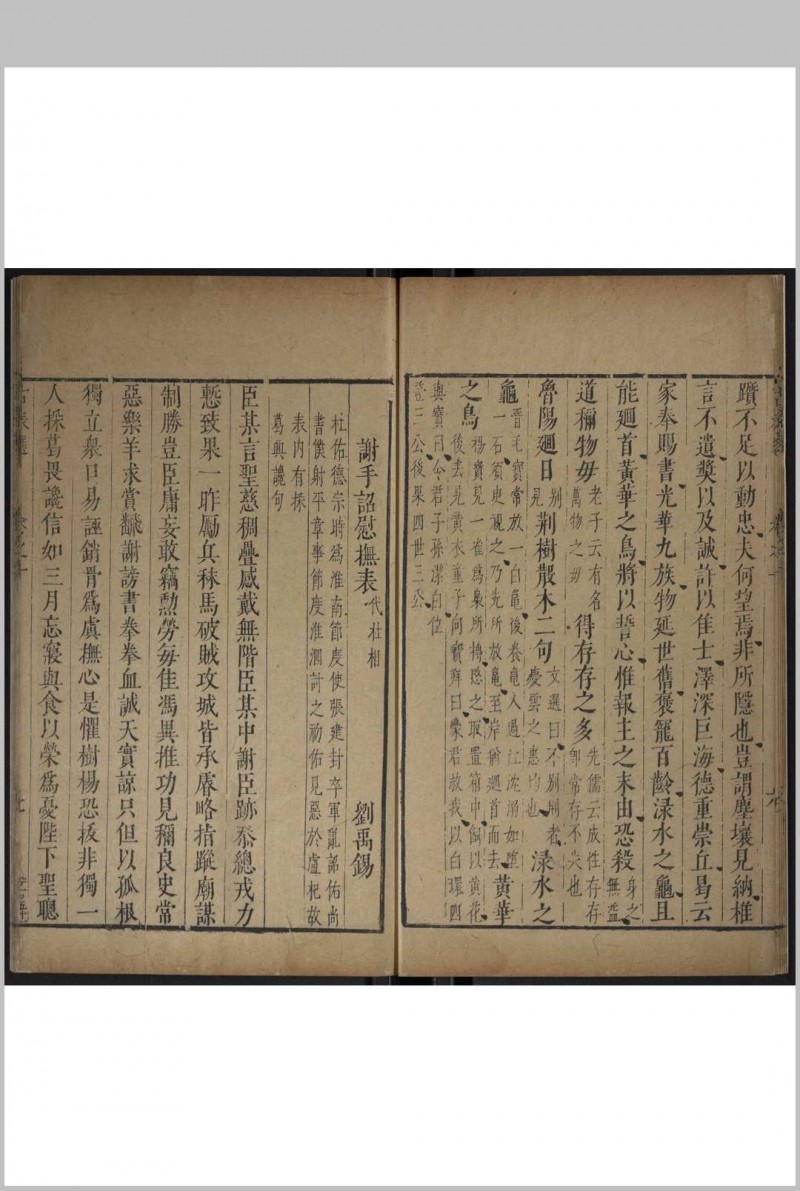 躓不足以動忠夫何望焉非所隱也豈謂塵壤見納椎
言不遺奬以及誠許以隹士澤深巨海德重崇丘曷云
家奉賜書光華九族物延世舊褒籠百齡渌水之龜且
能廻首黃華之鳥將以誓心惟報主之末由恐殺身之無益
道稱物毋老子云有名萬物之毋得存存之多先儒云成性存存卽常存不失也
魯陽廻日别見荆樹散木二句文選曰不别荆者慶雲之惠均也渌水之
龜晋毛寶常放一白龜後養龜人過江沈溺如墮一石須臾視之乃先所放龜至岸猶廻首而去黃華
之鳥楊寶見一雀爲梟所搏隱之取置箱中飼以黃花後去見黄衣童子向寳拜曰蒙君救我以白環四
與寶曰令君子孫潔白位
登三公後果四世三公
謝手詔慰撫表代杜相 劉禹錫
杜佑德宗時爲淮南節度使張建封卒軍亂詔佑尚
書僕射平章事節度淮泗討之初佑見惡於盧杞故
表内有採
葛興讒句
臣某言聖慈稠疊感戴無階臣某中謝臣跡忝總戎力
慙致果一昨勵兵秣馬破賊攻城皆承廟略指蹤廟謀
制勝豈臣庸妄敢竊勲勞每隹馮異推功見稱良史常
惡樂羊求賞翻謝謗書拳拳血誠天實諒只但以孤根
獨立衆口易誣銷骨爲虞撫心是懼樹楊恐拔非獨一
人採葛畏讒信如三月忘寢與食以榮爲憂陛下聖聰